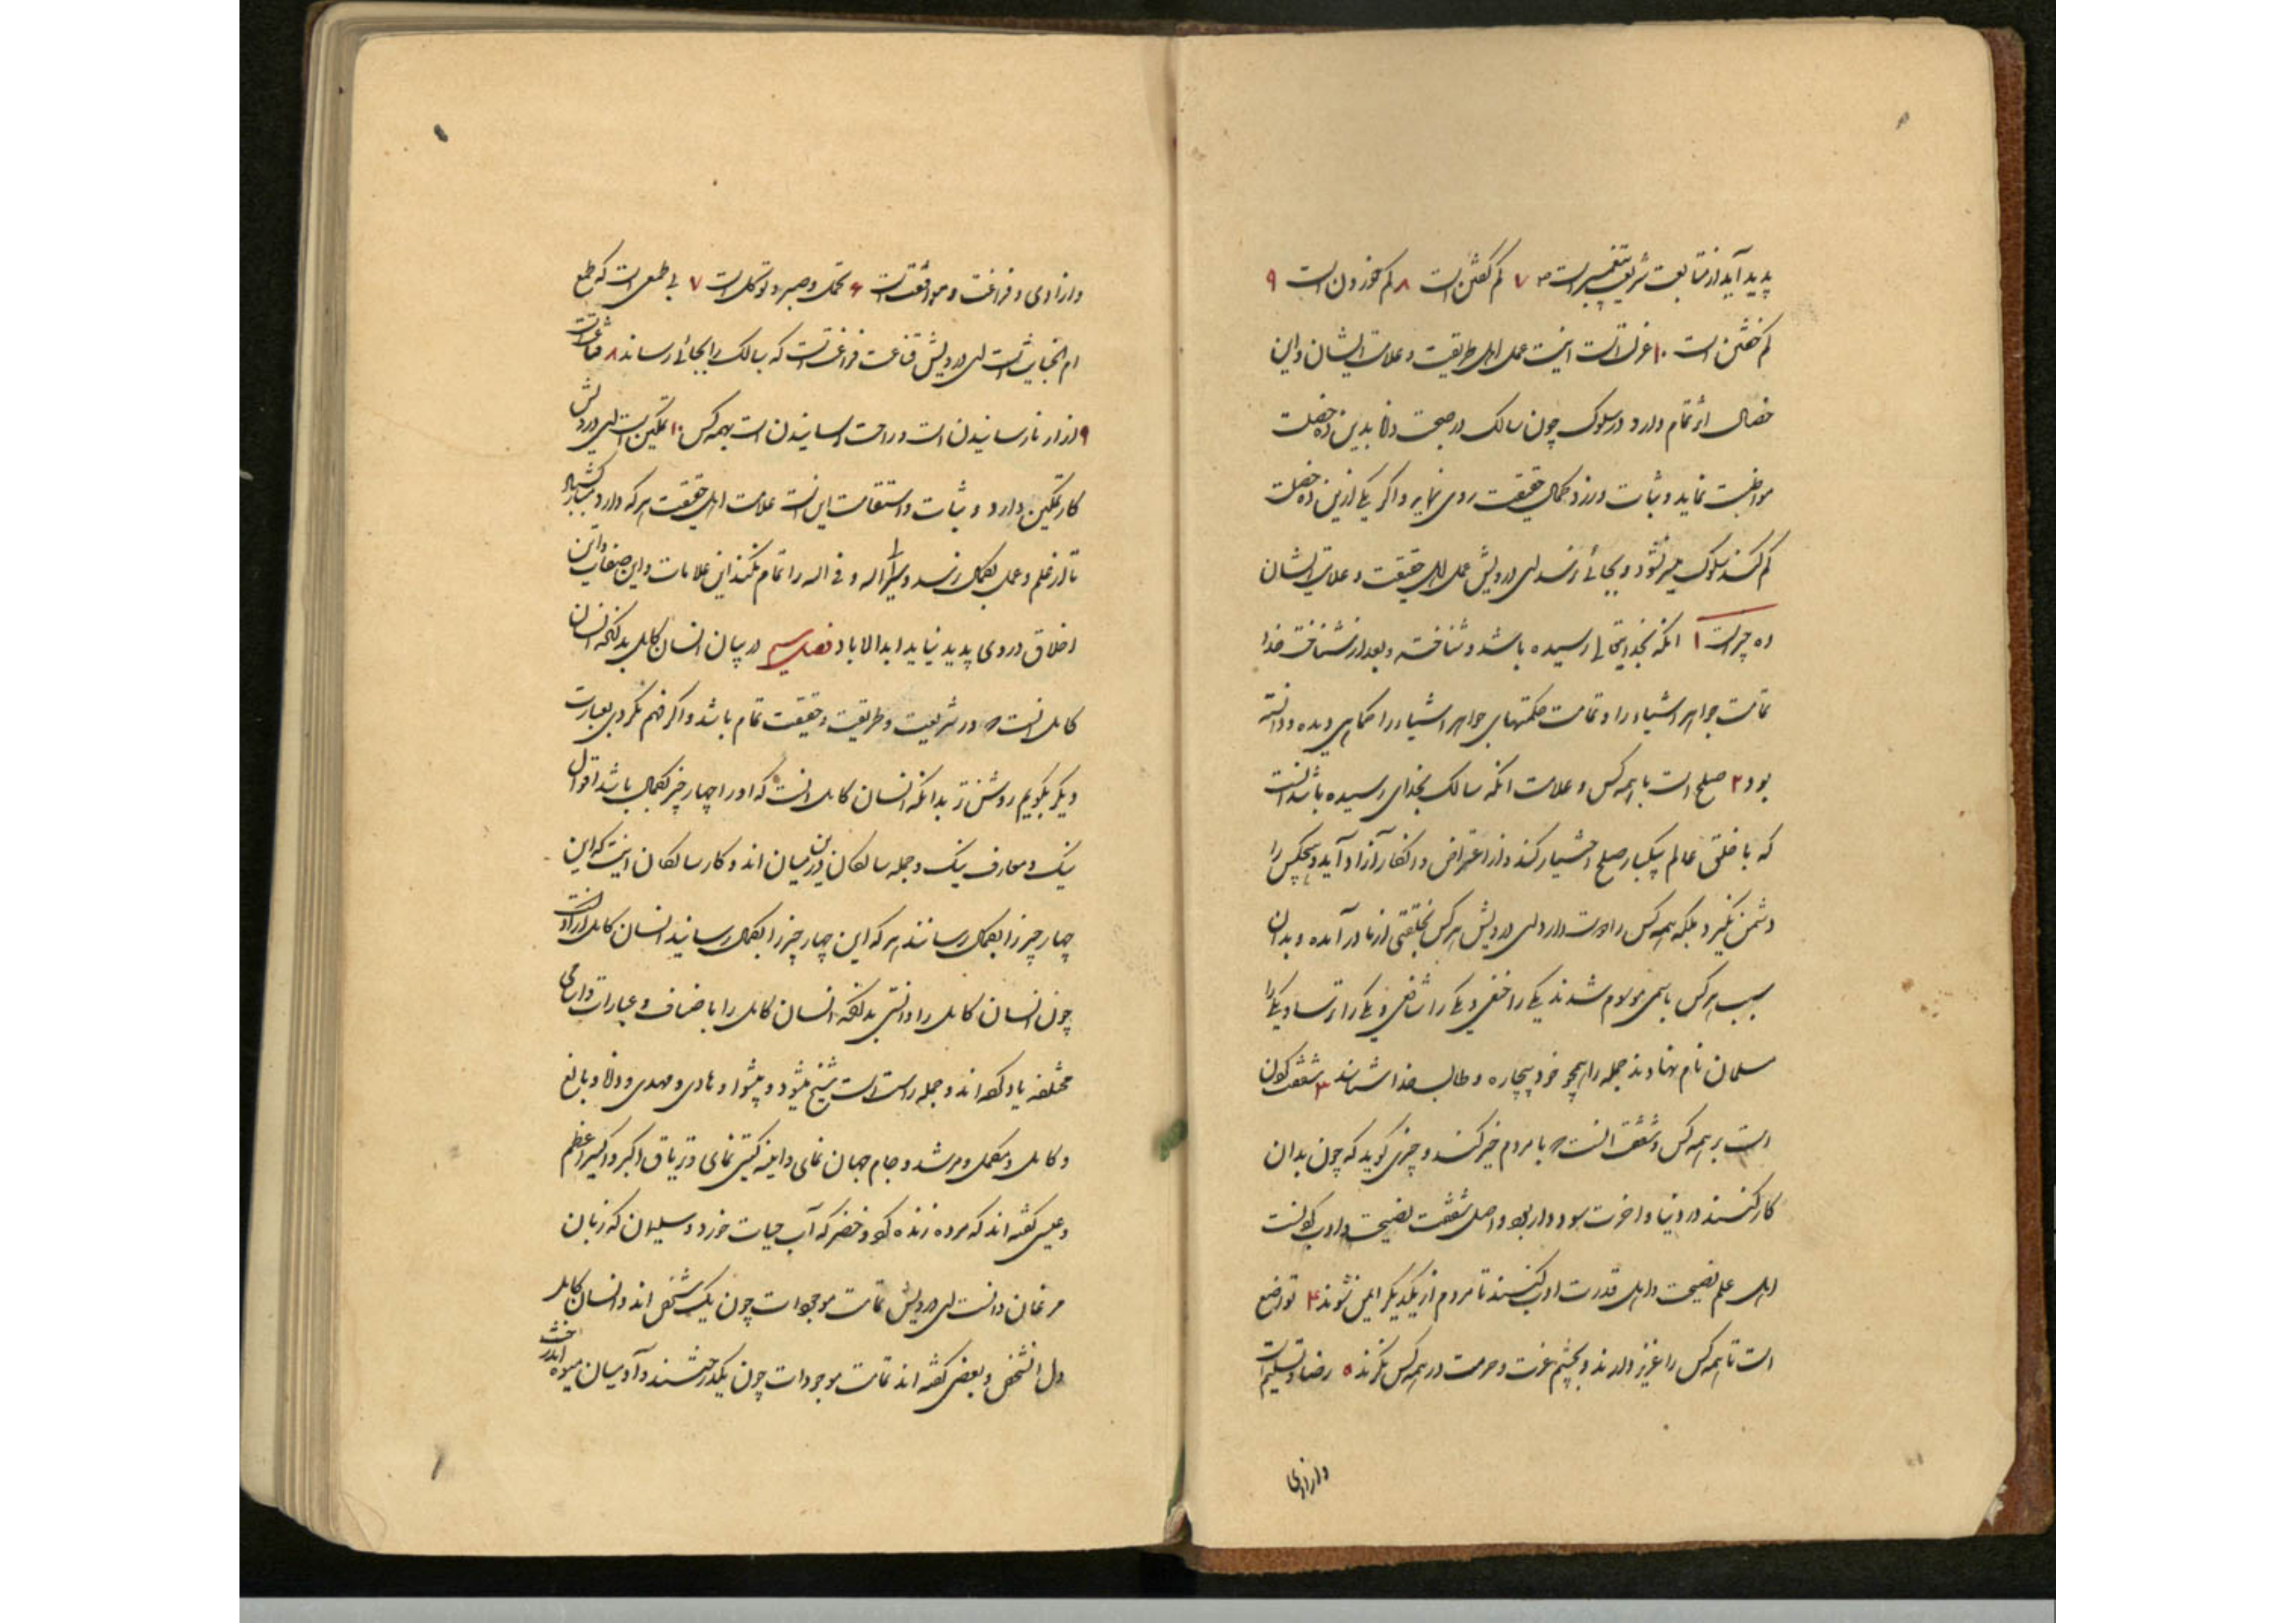 پدید آید از متابعت شریعت پیغمبر است ص ۷ کم گفتن است ۸ کم خوردن است ۹
کم خفتن است ۱۰ عزلت است اینست عمل اهل طریقت و علامت ایشان و این
خصال اثر تمام دارد در سلوک چون سالک در صحبت دانا بدین ده خصلت
مواظبت نماید و ثبات ورزد جمال حقیقت روی نماید و اگر یکی ازین ده خصلت
کم کند سلوک میسر نشود و بجائی نرسد ای درویش عمل اهل حقیقت و علامت ایشان
ده چیز است ۱ آنکه بخدایتعالی رسیده باشد و شناخته و بعد از شناخت خدا
تمامت جواهر اشیاء را و تمامت حکمتهای جواهر اشیاء را کماهی دیده و دانسته
بود ۲ صلح است با همه کس و علامت آنکه سالک بخدای رسیده باشد آنست
که با خلق عالم بیکبار صلح اختیار کند و از اعتراض و انکار آزاد آید و هیچکس را
دشمن نگیرد بلکه همه کس را دوست دارد ای درویش هر کس بخلقتی از مادر آمده و بدان
سبب هر کس باسمی موسوم شدند یکی را حنفی و یکی را شافعی و یکی را ترسا و یکی را
مسلمان نام نهادند جمله را همچو خود بیچاره و طالب خدا شناسند ۳ شفقت کردن
است بر همه کس و شفقت آنست که با مردم خیر کند و چیزی گوید که چون بدان
کار کنند در دنیا و آخرت سود دارد و اصل شفقت نصیحت و ادب کردنست
اهل علم نصیحت و اهل قدرت ادب کنند تا مردم از یکدیگر ایمن شوند ۴ تواضع
است تا همه کس را عزیز دارند و بچشم عزت و حرمت در همه کس نگرند ۵ رضا و تسلیم است
و آزادی
و آزادی و فراغت و موافقت است ۶ تحمل و صبر و توکل است ۷ بی طمعی است که طمع
ام الخبایث است ای درویش قناعت فراغتست که سالک را بجائی رساند ۸ قناعت است
۹ آزار نارسانیدن است و راحت رسانیدن است بهمه کس ۱۰ تمکین است ای درویش
کار تمکین دارد و ثبات و استقامت این است علامت اهل حقیقت هر که دارد مبارکش باد
تا در علم و عمل بکمال نرسد و سیر الی الله و فی الله را تمام نکند این علامات و این صفات و این
اخلاق در وی پدید نیاید ابدالاباد فصل سیم در بیان انسان کامل بدانکه انسان
کامل آنست که در شریعت و طریقت و حقیقت تمام باشد و اگر فهم نکردی بعبارت
دیگر بگویم روشن تر بدانکه انسان کامل آنست که او را چهار چیز بکمال باشد اقوال
نیک و معارف نیک و جمله سالکان درین میان اند و کار سالکان اینست که این
چهار چیز را بکمال رسانند هر که این چهار چیز را بکمال رسانید انسان کامل آزاد است
چون انسان کامل را دانستی بدانکه انسان کامل را باضافات و عبارات و اسامی
مختلفه یاد کرده اند و جمله راست است شیخ میشود و پیشوا و هادی و مهدی و دانا و بالغ
و کامل و مکمل و مرشد و جام جهان نمای و آینه گیتی نمای و تریاق اکبر و اکسیر اعظم
و عیسی گفته اند که مرده زنده کرد و خضر که آب حیات خورد و سلیمان که زبان
مرغان دانست ای درویش تمامت موجودات چون یک شخص اند و انسان کامل
دل آنشخص و بعضی گفته اند تمامت موجودات چون یکدرختند و آدمیان میوه آندرخت